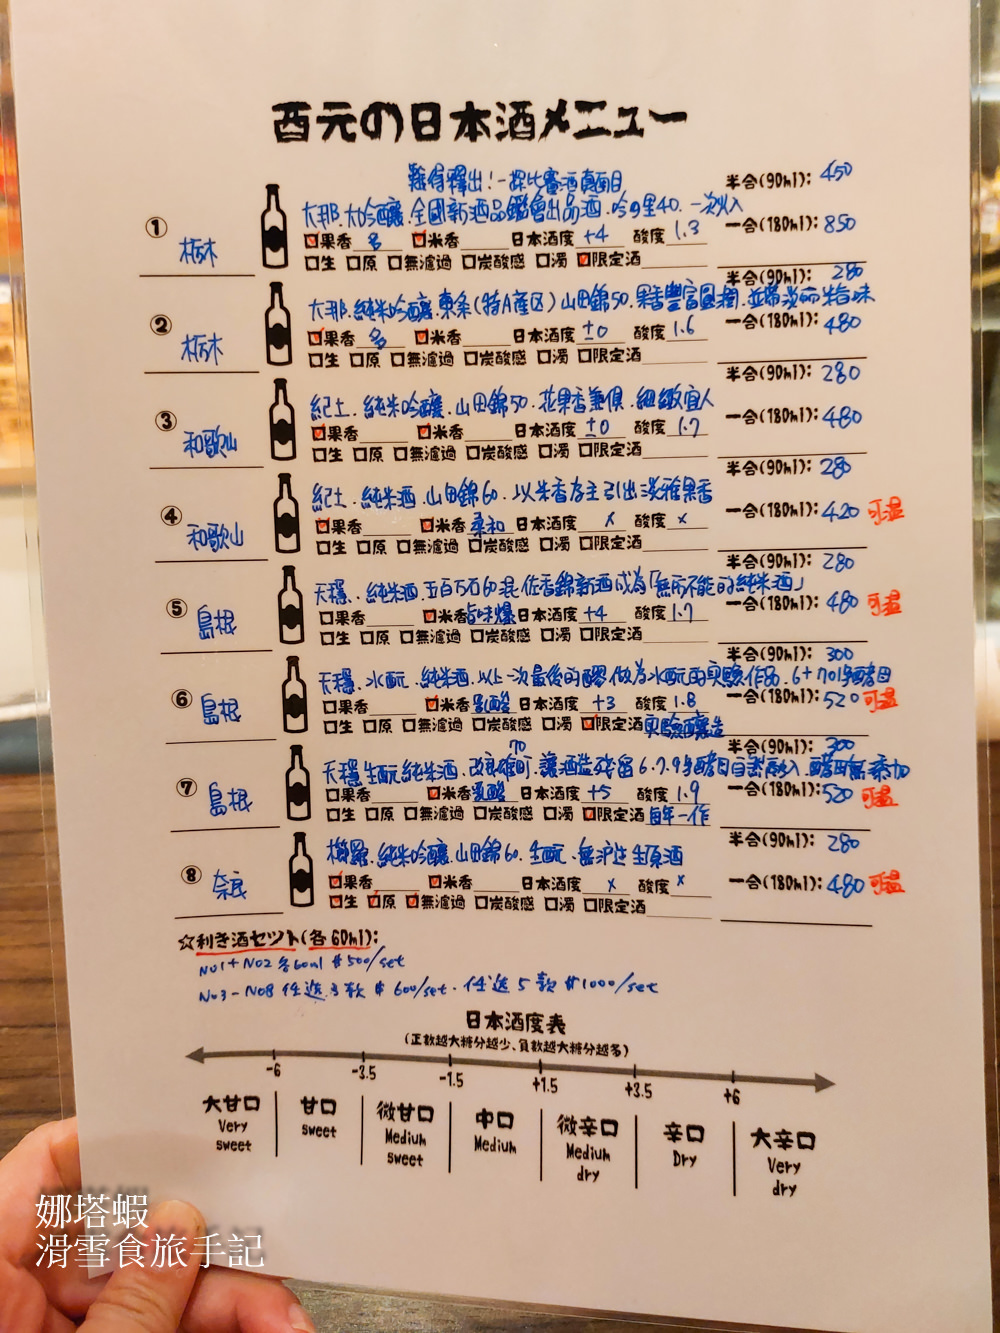 酉元の日本酒メニュー
難得釋出!一探比賽酒真面目
半合(90ml): 450
① 栃木
大那.大吟釀.全國新酒品鑑會出品酒.吟のዻ40.一次火入
果香 多 米香 日本酒度 +4 酸度 1.3
一合(180ml): 850
生 原 無濾過 炭酸感 濁 限定酒
半合(90ml): 280
② 栃木
大那.純米吟釀.東条(特A產区)山田錦50.果香豐富圓潤.並帶淡雅米旨味
果香 多 米香 日本酒度 ±0 酸度 1.6
一合(180ml): 480
生 原 無濾過 炭酸感 濁 限定酒
半合(90ml): 280
③ 和歌山
紀土.純米吟釀.山田錦50.花果香兼俱.細緻宜人
果香 米香 日本酒度 ±0 酸度 1.7
一合(180ml): 480
生 原 無濾過 炭酸感 濁 限定酒
半合(90ml): 280
④ 和歌山
紀土.純米酒.山田錦60.以米香為主引出淡雅果香
果香 米香 柔和 日本酒度 x 酸度 x
一合(180ml): 420 可溫
生 原 無濾過 炭酸感 濁 限定酒
半合(90ml): 280
⑤ 島根
天穩.純米酒.五百万石60混佐香錦新酒成為「無所不能的純米酒」
果香 米香 旨味爆 日本酒度 +4 酸度 1.7
一合(180ml): 480 可溫
生 原 無濾過 炭酸感 濁 限定酒
半合(90ml): 300
⑥ 島根
天穩.水酛.純米酒.以上一次最後的醪做為水酛的實驗作品.6+701号酵母
果香 米香 乳酸 日本酒度 +3 酸度 1.8
一合(180ml): 520 可溫
生 原 無濾過 炭酸感 濁 限定酒 實驗釀造
半合(90ml): 300
⑦ 島根
天穩生酛純米酒.改良雄町70.讓酒造殘留6.7.9号酵母自然落入.酵母無添加
果香 米香 乳酸 日本酒度 +5 酸度 1.9
一合(180ml): 520 可溫
生 原 無濾過 炭酸感 濁 限定酒 每年一作
半合(90ml): 280
⑧ 奈良
純米吟釀.山田錦60.生酛.無濾過生原酒
果香 米香 日本酒度 x 酸度 x
一合(180ml): 480 可溫
生 原 無濾過 炭酸感 濁 限定酒
☆利き酒セツト(各60ml):
No1+No2 各60ml $500/set
No3-No8 任選3款 $600/set.任選5款 $1000/set
日本酒度表
(正數越大糖分越少、負數越大糖分越多)
-6 -3.5 -1.5 +1.5 +3.5 +6
大甘口 甘口 微甘口 中口 微辛口 辛口 大辛口
Very sweet sweet Medium sweet Medium Medium dry Dry Very dry
娜塔蝦
滑雪食旅手記